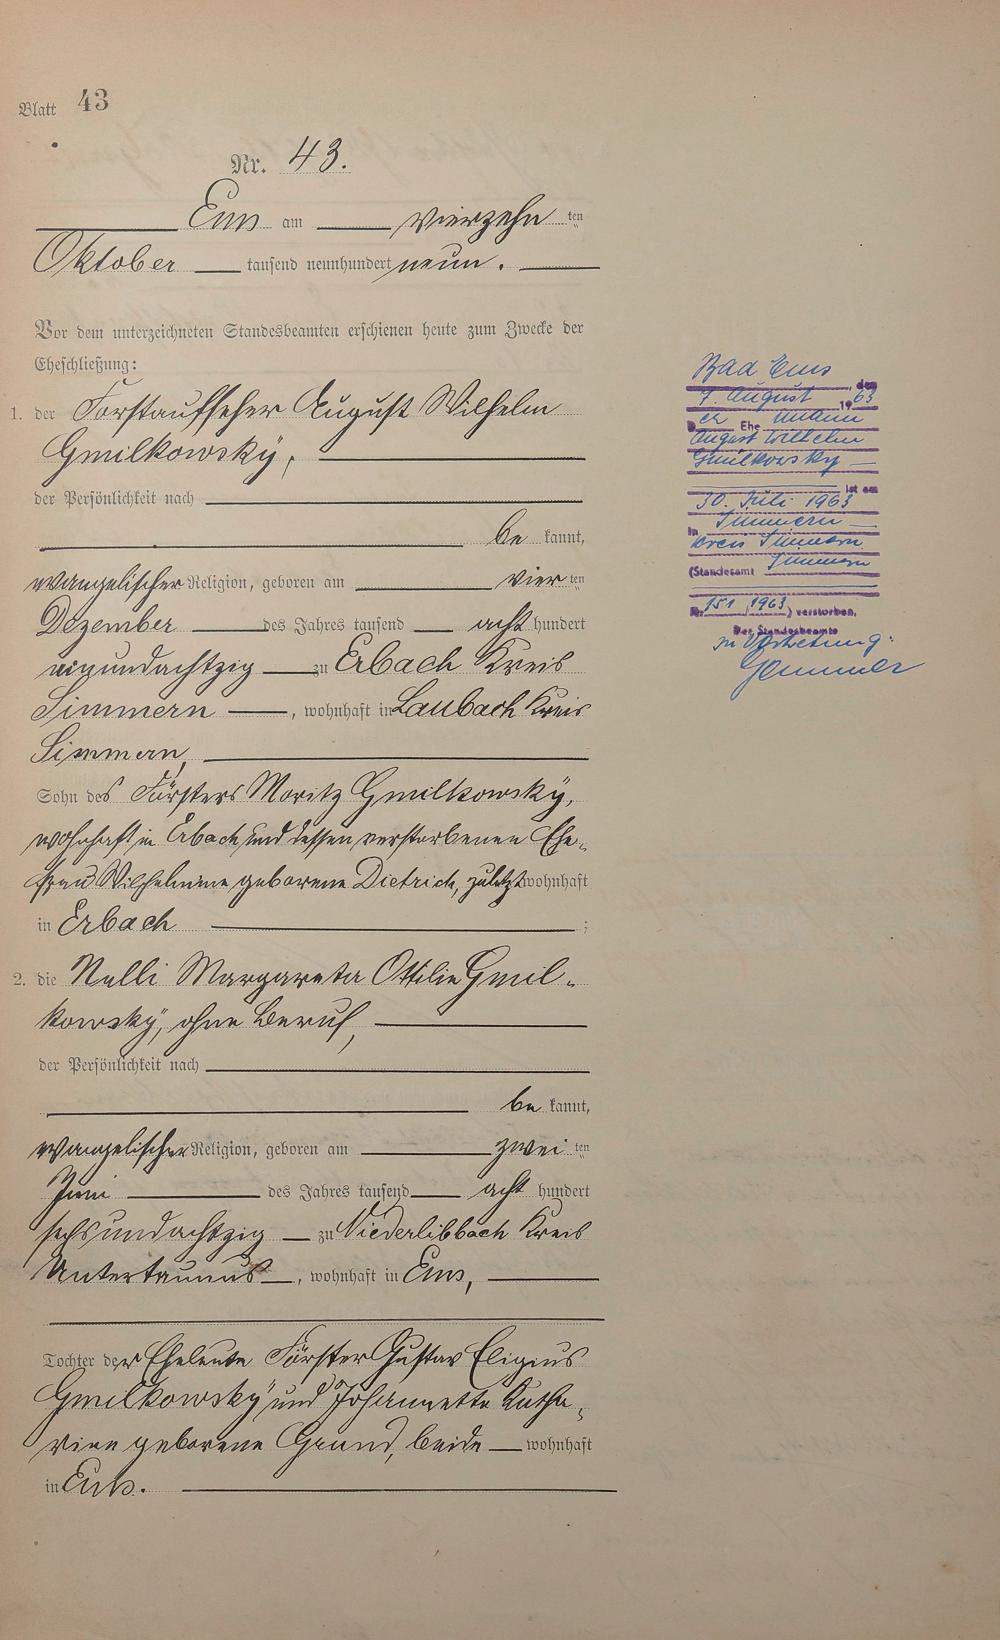 Blatt 43
Nr. 43.
Ems am vierzehn ten
Oktober tausend neunhundert neun.
Vor dem unterzeichneten Standesbeamten erschienen heute zum Zwecke der
Eheschließung:
1. der Forstaufseher August Wilhelm
Gmilkowsky,
der Persönlichkeit nach
be kannt,
evangelischer Religion, geboren am vier ten
Dezember des Jahres tausend acht hundert
einundachtzig zu Erbach Kreis
Simmern, wohnhaft in Laubach Kreis
Simmern,
Sohn des Försters Moritz Gmilkowsky,
wohnhaft in Erbach und dessen verstorbenen Ehe-
frau Wilhelmine geborene Dietrich, zuletzt wohnhaft
in Erbach ;
2. die Nelli Margareta Ottilie Gmil-
kowsky, ohne Beruf,
der Persönlichkeit nach
be kannt,
evangelischer Religion, geboren am zwei ten
Juni des Jahres tausend acht hundert
sechsundachtzig zu Niederlibbach Kreis
Untertaunus, wohnhaft in Ems,
Tochter der Eheleute Förster Gustav Eligius
Gmilkowsky und Johannette Katha-
rine geborene Grund, beide wohnhaft
in Ems.
Bad Ems, den
7. August 1963
Der Ehemann
August Wilhelm
Gmilkowsky
ist am
30. Juli 1963
in Simmern
Kreis Simmern
(Standesamt Simmern
Nr. 151/1963) verstorben.
Der Standesbeamte
In Vertretung: